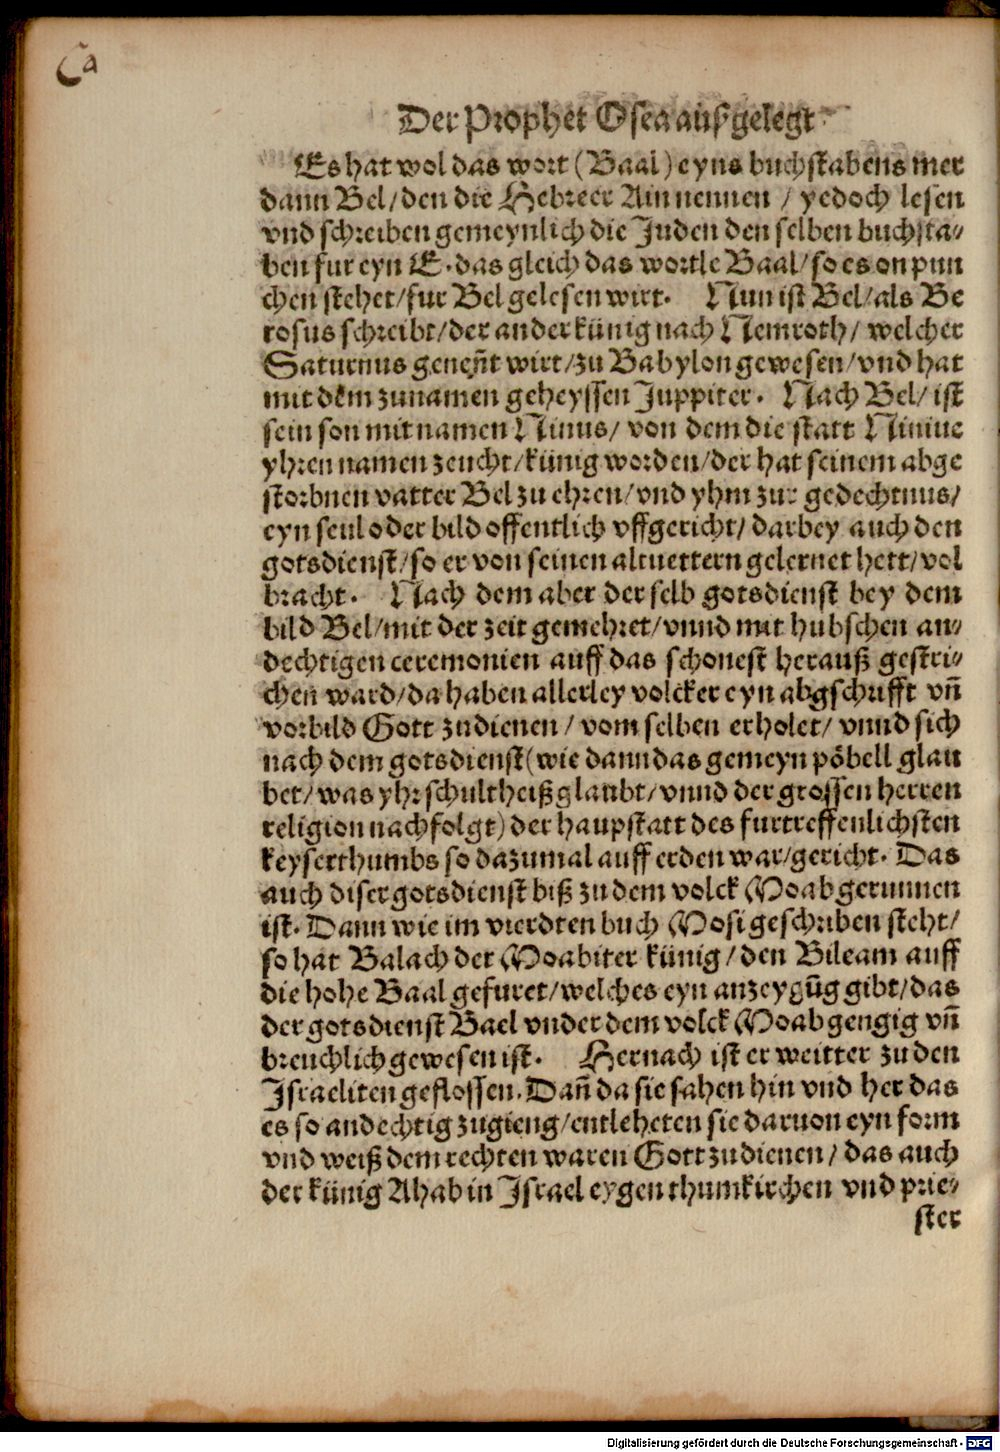 Ca
Der Prophet Osea außgelegt
Es hat wol das wort (Baal) eyns buchstabens mer
dann Bel/ den die Hebreer Ain nennen / yedoch lesen
vnd schreiben gemeynlich die Juden den selben buchsta⸗
ben fur eyn E. das gleich das wortle Baal/ so es on pun
chen stehet/ fur Bel gelesen wirt. Nun ist Bel/ als Be
rosus schreibt/ der ander künig nach Nemroth/ welcher
Saturnus geneñt wirt/ zu Babylon gewesen/ vnd hat
mit dem zunamen geheyssen Juppiter. Nach Bel/ ist
sein son mit namen Ninus/ von dem die statt Niniue
yhren namen zeucht/ künig worden/ der hat seinem abge
storbnen vatter Bel zu ehren/ vnd yhm zur gedechtnus/
eyn seul oder bild offentlich vffgericht/ darbey auch den
gotsdienst/ so er von seinen altuettern gelernet hett/ vol
bracht. Nach dem aber der selb gotsdienst bey dem
bild Bel/ mit der zeit gemehret/ vnnd mit hubschen an⸗
dechtigen ceremonien auff das schonest herauß gestri⸗
chen ward/ da haben allerley volcker eyn abgschrifft vñ
vorbild Gott zudienen / vom selben erholet/ vnnd sich
nach dem gotsdienst (wie dann das gemeyn pöbell glau
bet/ was yhr schultheiß glaubt/ vnnd der grossen herren
religion nachfolgt) der haupstatt des furtreffenlichsten
keyserthumbs so dazumal auff erden war/ gericht. Das
auch diser gotsdienst biß zu dem volck Moab gerunnen
ist. Dann wie im vierdten buch Mosi geschriben steht/
so hat Balach der Moabiter künig / den Bileam auff
die hohe Baal gefuret/ welches eyn anzeygũg gibt/ das
der gotsdienst Bael vnder dem volck Moab gengig vñ
breuchlich gewesen ist. Hernach ist er weitter zu den
Israeliten geflossen. Dañ da sie sahen hin vnd her das
es so andechtig zugieng/ entleheten sie daruon eyn form
vnd weiß dem rechten waren Gott zudienen / das auch
der künig Ahab in Israel eygenthumkirchen vnd prie⸗
ster
Digitalisierung gefördert durch die Deutsche Forschungsgemeinschaft - DFG